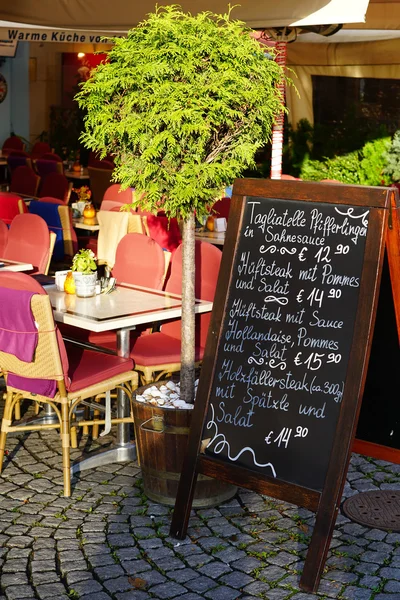 Warme Küche von
Tagliatelle Pfifferlingen
in Sahnesauce
€ 12 90
Hüftsteak mit Pommes
und Salat € 14 90
Hüftsteak mit Sauce
Hollandaise, Pommes
und Salat € 15 90
Holzfällersteak (ca. 300g)
mit Spätzle und
Salat
€ 14 90